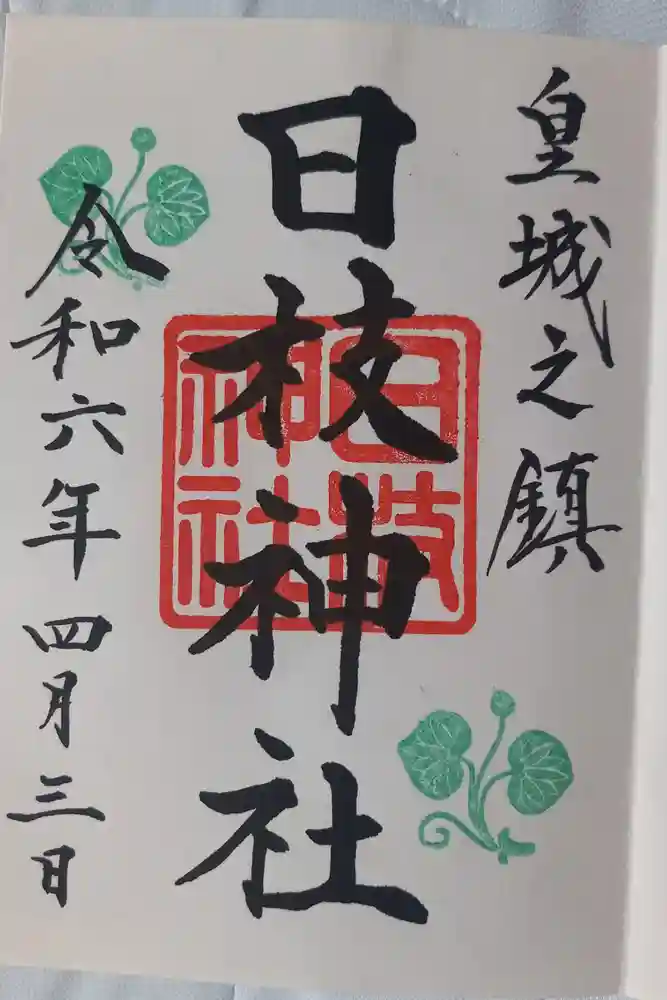 皇城之鎮
日枝神社
日枝神社
令和六年四月三日